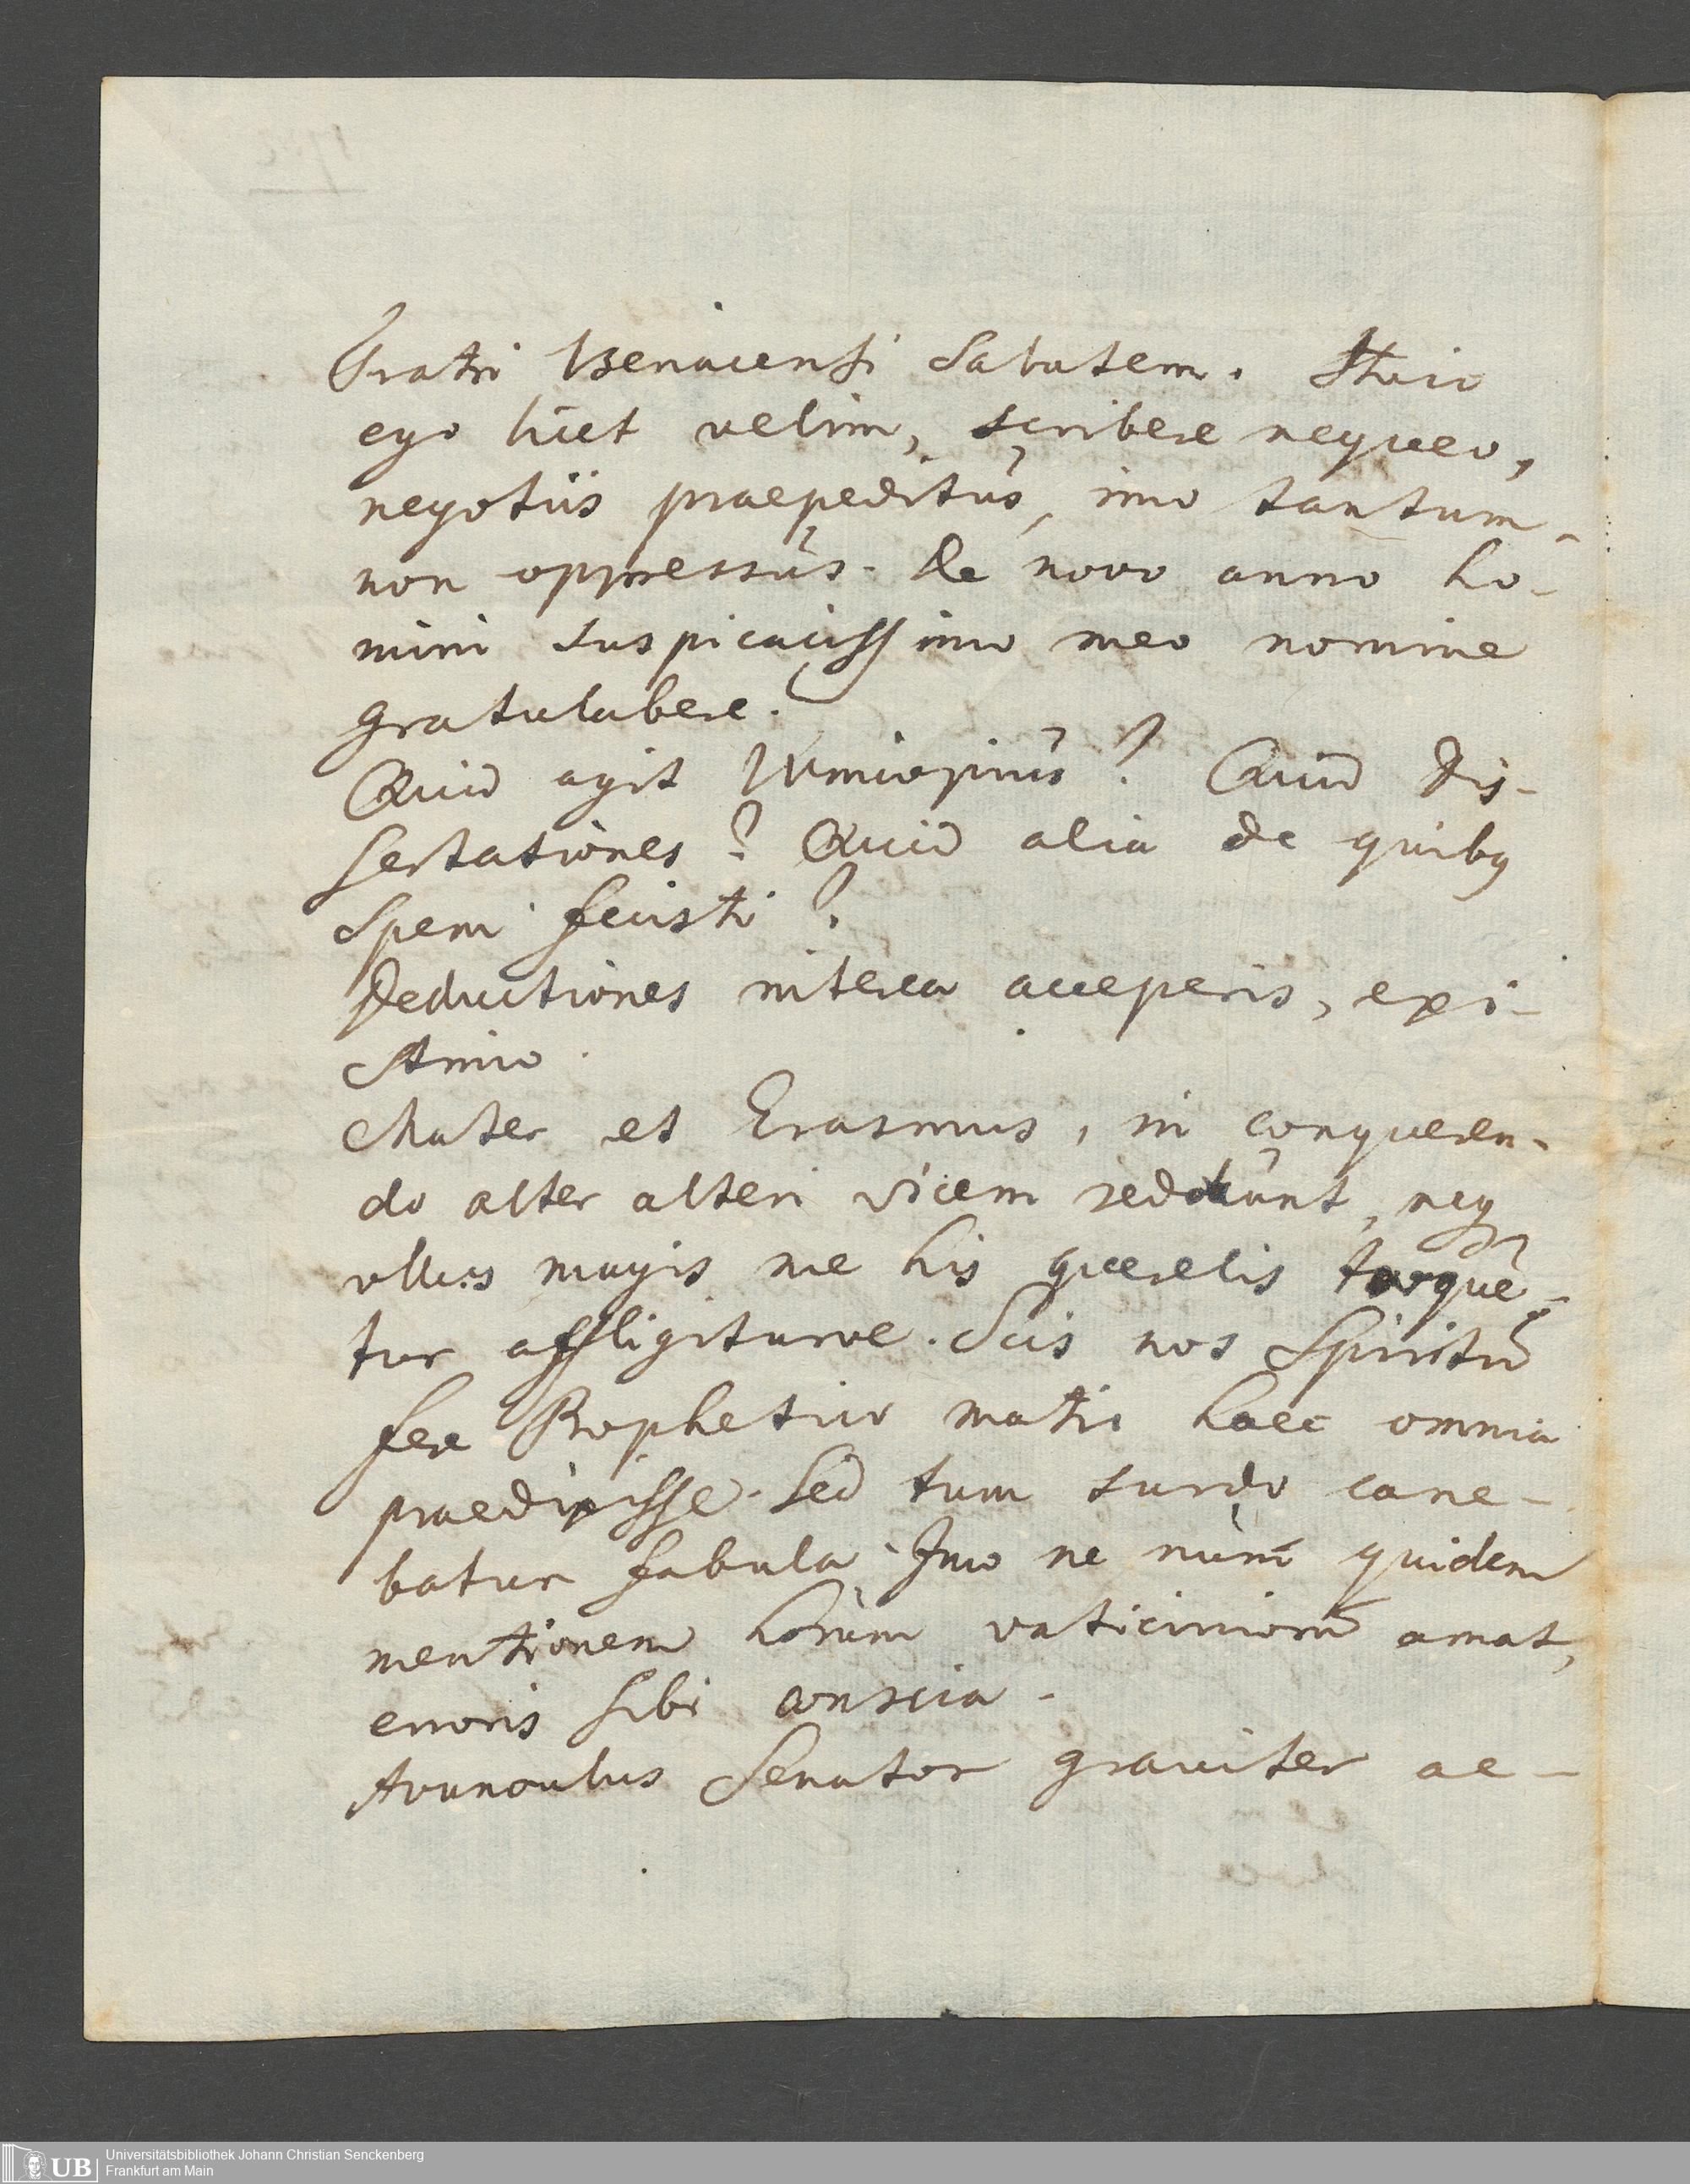 Fratri Benacensi Salutem. Huic
ego licet velim, scribere nequeo,
negotiis praepeditus, imo tantum-
non oppressus. De novo anno ho-
mini suspicacissimo meo nomine
gratulabere.
Quid agit ? Quid Dis-
sertationes? Quid alia de quibq
Spem fecisti?
Deductiones interea acceperis, exi-
stimo.
Mater et Erasmus, in conqueren-
do alter alteri vicem reddunt, neq
ullus magis me his querelis torque-
tur affligiturve. Scis nos Spiritu
fere Prophetico matri haec omnia
praedixisse. Sed tum surdo cane-
batur fabula. Imo ne nunc quidem
mentionem horum vaticiniorum amat,
erroris sibi conscia.
Avunculus Senator graviter ae-
UB Universitätsbibliothek Johann Christian Senckenberg
Frankfurt am Main